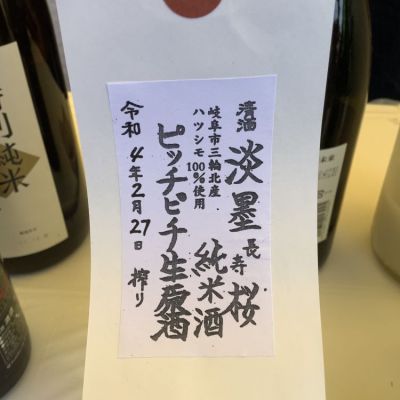 清酒
淡墨桜
長寿
純米酒
岐阜市三輪北産
ハツシモ100%使用
ピッチピチ生原酒
令和4年2月27日 搾り
特別純米